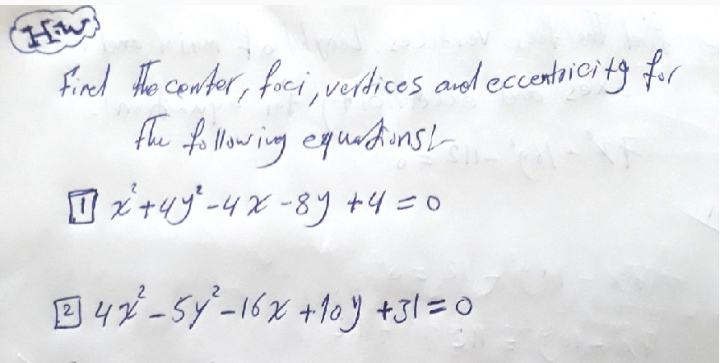 H.W
Find the center, foci, vertices and eccentricity for
the following equations:-
1 x²+4y²-4x-8y+4=0
2 4x²-5y²-16x+10y+31=0